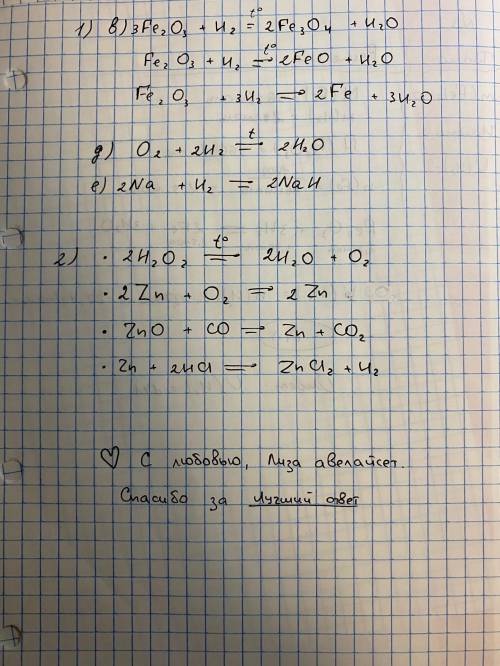 1) в) 3Fe₂O₃ + H₂ =t°= 2Fe₃O₄ + H₂O
Fe₂O₃ + H₂ =t°= 2FeO + H₂O
Fe₂O₃ + 3H₂ = 2Fe + 3H₂O
д) O₂ + 2H₂ =t= 2H₂O
е) 2Na + H₂ = 2NaH
2) · 2H₂O₂ =t°= 2H₂O + O₂
· 2Zn + O₂ = 2Zn
· ZnO + CO = Zn + CO₂
· Zn + 2HCl = ZnCl₂ + H₂
♡ С любовью, Лиза авелайсет.
Спасибо за лучший ответ